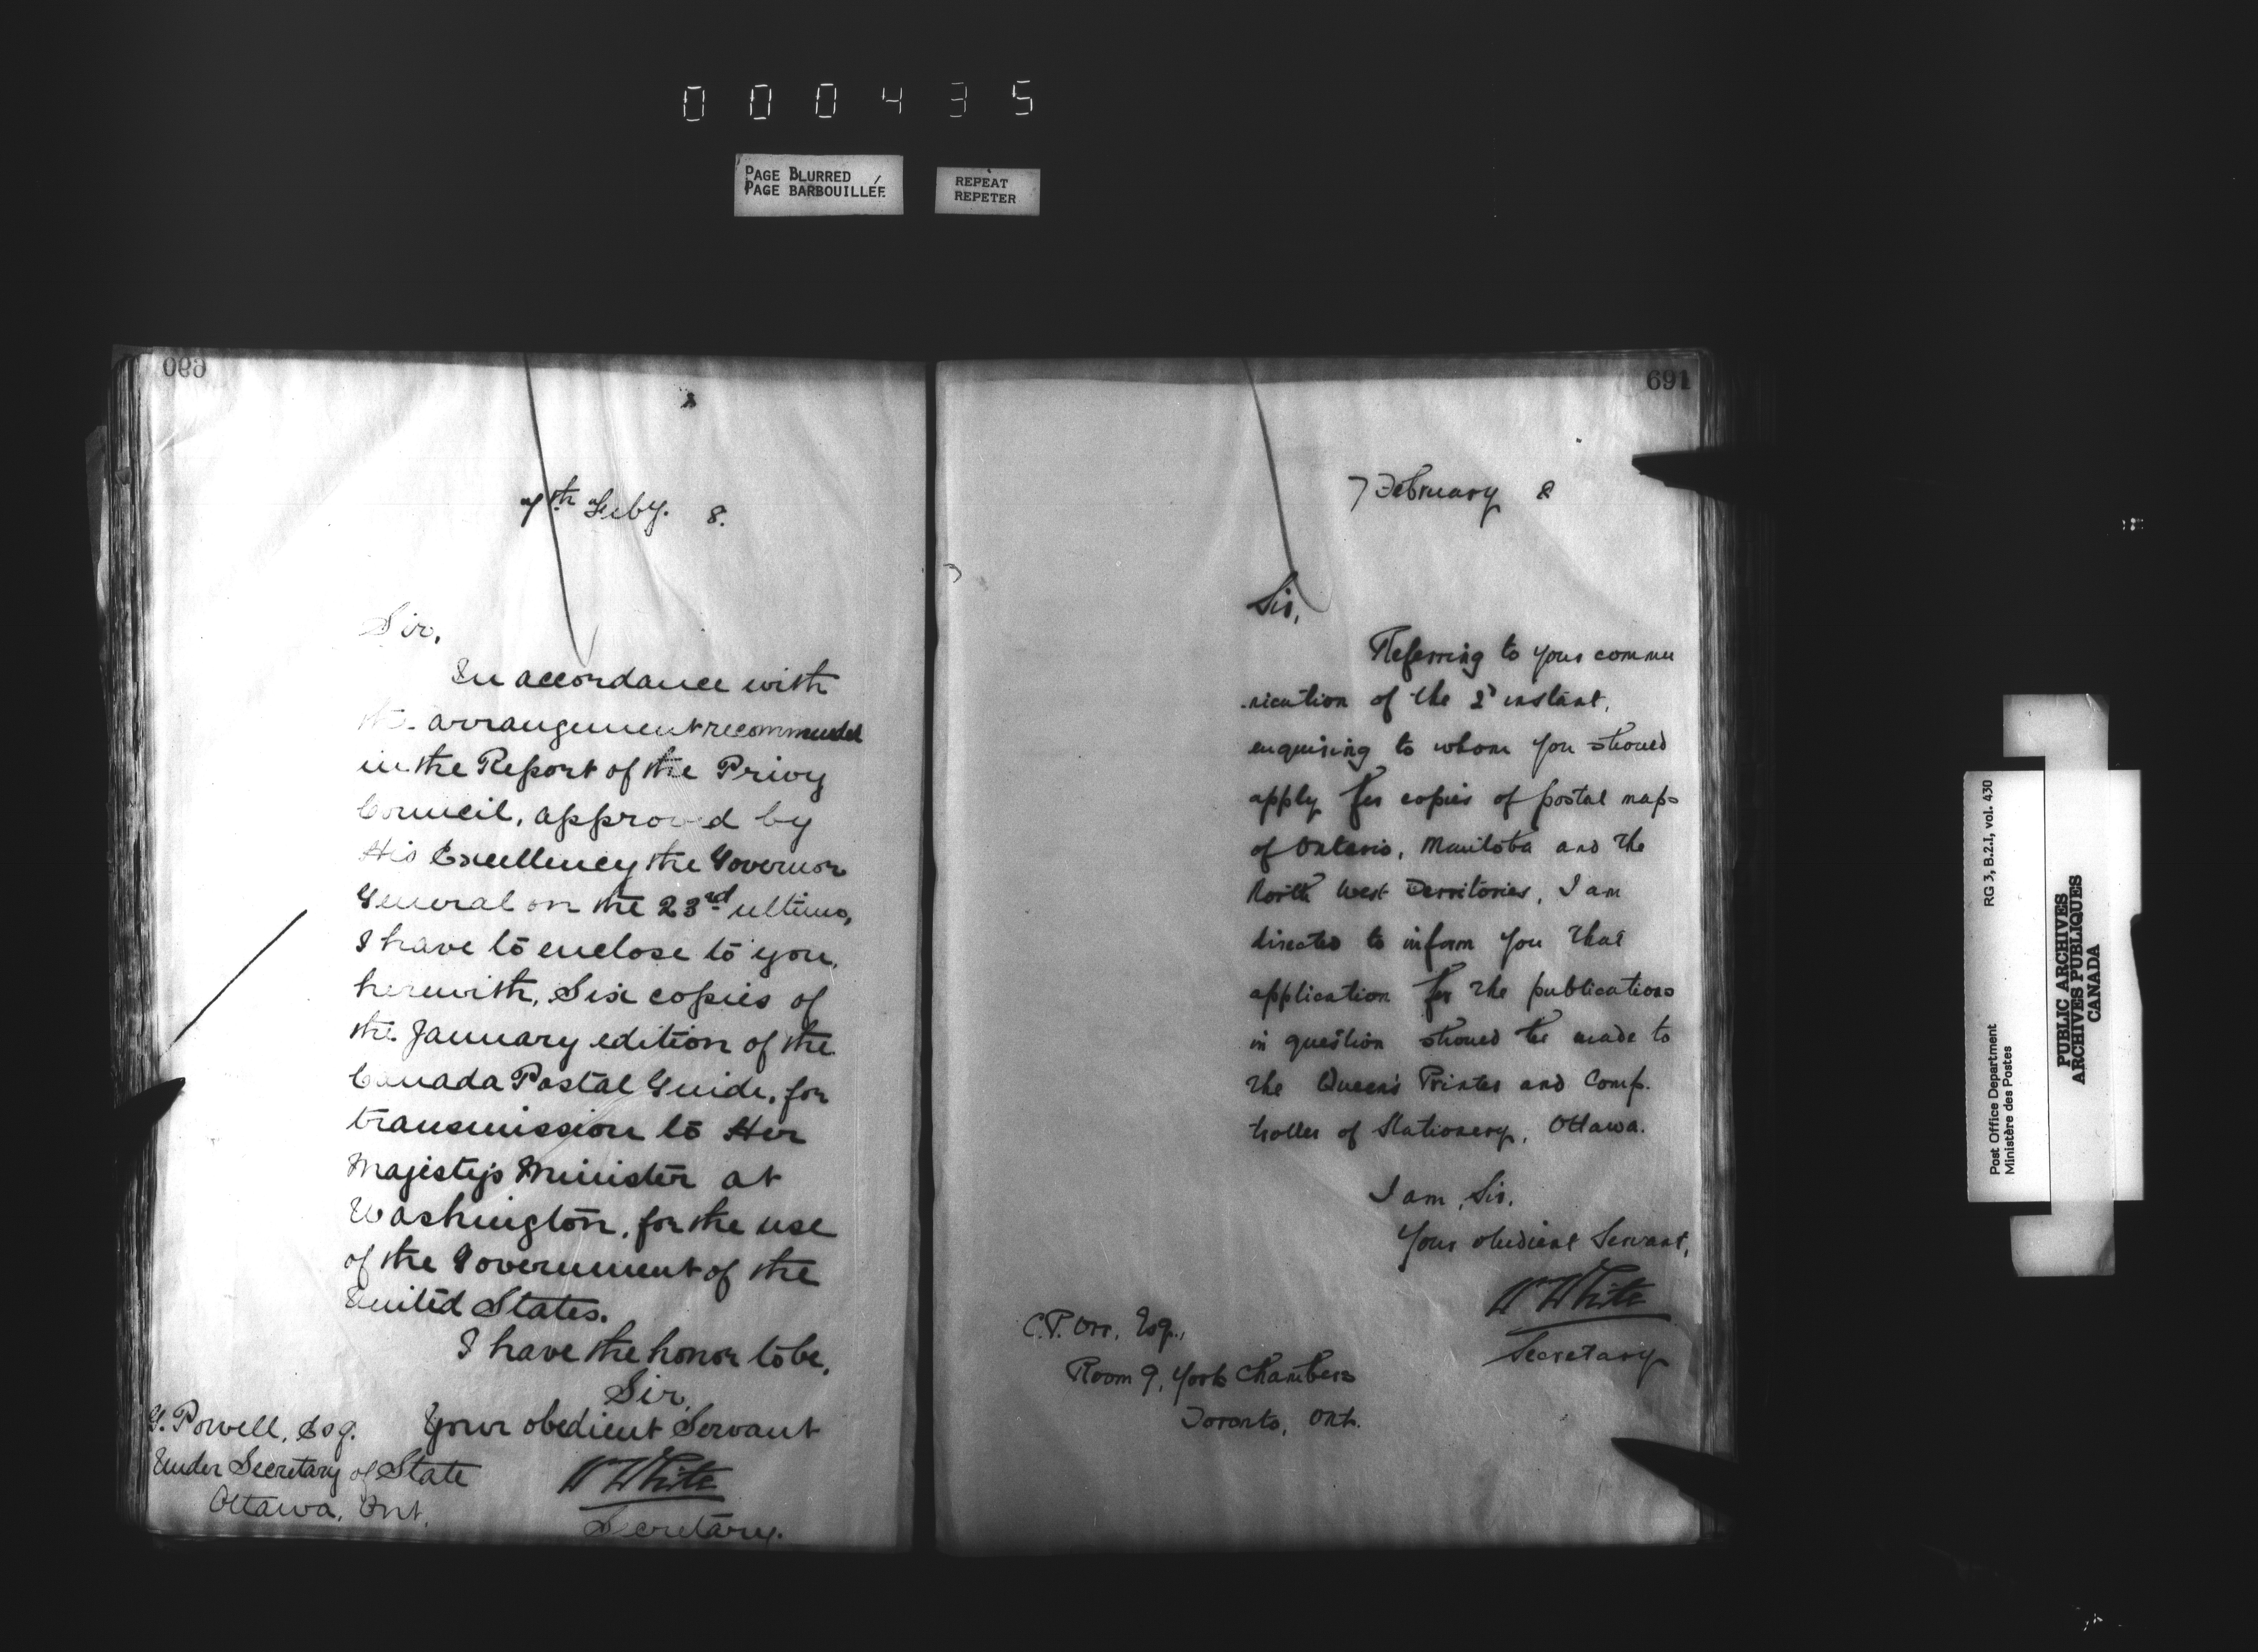 000435
PAGE BLURRED
PAGE BARBOUILLÉE
REPEAT
REPETER
690
7th Feby. 8.
Sir,
In accordance with
the arrangement recommended
in the Report of the Privy
Council, approved by
His Excellency the Governor
General on the 23rd ultimo,
I have to enclose to you,
herewith, Six copies of
the January edition of the
Canada Postal Guide, for
transmission to Her
Majesty's Minister at
Washington, for the use
of the Government of the
United States.
I have the honor to be,
Sir,
Your obedient Servant
W White
Secretary.
G. Powell, Esq.
Under Secretary of State
Ottawa, Ont.
691
7 February 8
Sir,
Referring to your commu
nication of the 2d instant,
enquiring to whom you should
apply for copies of postal maps
of Ontario, Manitoba and the
North West Territories, I am
directed to inform you that
application for the publications
in question should be made to
the Queen's Printer and Comp.
troller of Stationery, Ottawa.
I am, Sir,
Your obedient Servant,
W White
Secretary
C.P. Orr, Esq.,
Room 9, York Chambers
Toronto, Ont.
Post Office Department
Ministère des Postes
RG 3, B.2.I, vol. 430
PUBLIC ARCHIVES
ARCHIVES PUBLIQUES
CANADA